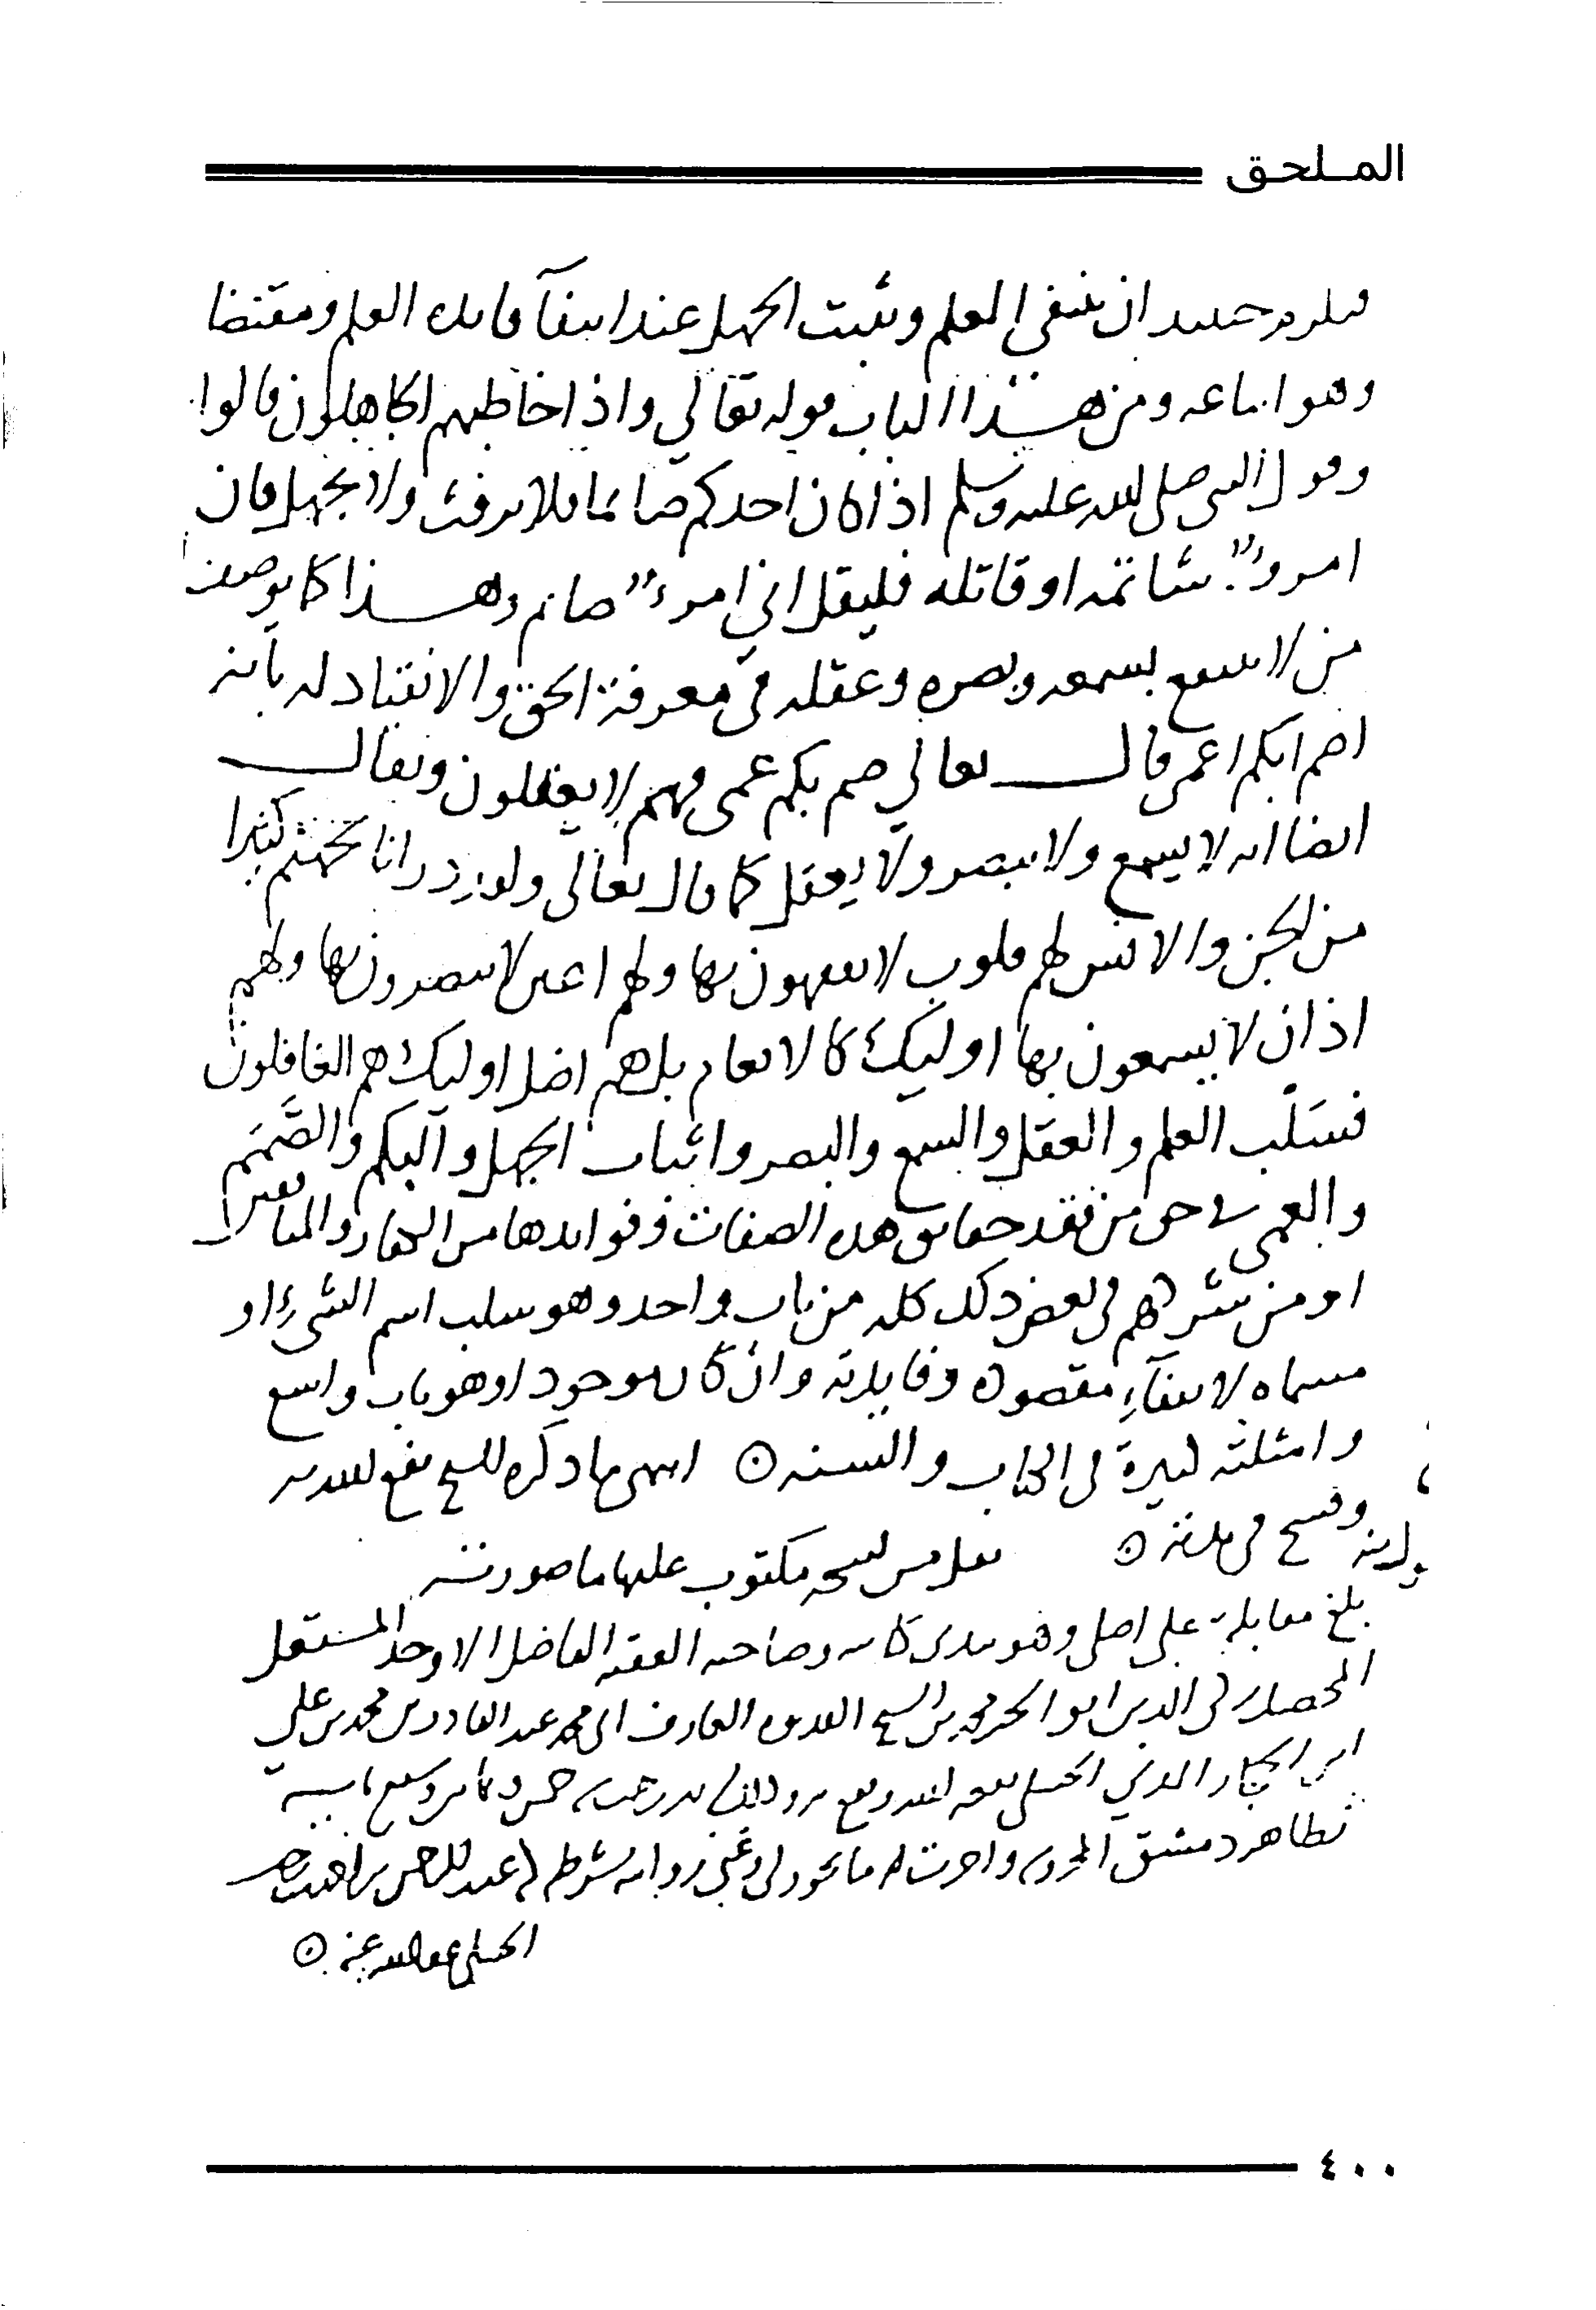 الملحق
فيلزم حينئذ ان ينتفي العلم ويثبت الجهل عند انتفآ فايده العلم ومقتضا
وهو اتباعه ومن هذا الباب قوله تعالي واذا خاطبهم الجاهلون قالوا
وقول النبي صلى الله عليه وسلم اذا كان احدكم صائما فلا يرفث ولا يجهل فان
امرؤ شاتمه او قاتله فليقل اني امرء صائم وهذا كما يوصف
من لا ينتفع بسمعه وبصره وعقله في معرفة الحق والانقياد له بأنه
اصم ابكم اعمى قال تعالي صم بكم عمى فهم لا يعقلون ويقال
ايضا انه لا يسمع ولا يبصر ولا يعقل كما قال تعالى ولقد ذرانا لجهنم كثيرا
من الجن والانس لهم قلوب لا يفقهون بها ولهم اعين لا يبصرون بها ولهم
اذان لا يسمعون بها اوليك كالانعام بل هم اضل اوليك هم الغافلون
فسَلْب العلم والعقل والسمع والبصر واثبات الجهل والبكم والصَّمَم
والعمى في حق من فقد حقايق هذه الصفات وفوايدها من الكفار والمنافقين
او من شركهم في بعض ذلك كله من باب واحد وهو سلب اسم الشيء او
مسماه لانتفآءِ مقصوده وفايدته وان كان موجودا وهو باب واسع
وامثلته كثيرة في الكتاب والسنه ⊙ انتهى ما ذكره الشيخ نفع الله به
وفسح في مدته ⊙ نقل من نسخه مكتوب عليها ما صورته
بلغ مقابلة على اصلي وهو بيدي كاتبه وصاحبه الفقيه الفاضل الاوحد المشتغل
المحصل الدين ابو الخير محمد بن الشيخ القدوه العارف ابي محمد عبد القادر بن محمد بن علي
ابن الحجار المدني الحنبلي نفعه الله ونفع به وذلك خمس وثمانين وسبع مايه
بظاهر دمشق المحروسه واجزت له ما يجوز لي وعني روايته بشرطه عبد الرحمن بن احمد بن رجب
الحنبلي عفا الله عنه ⊙
٤٠٠